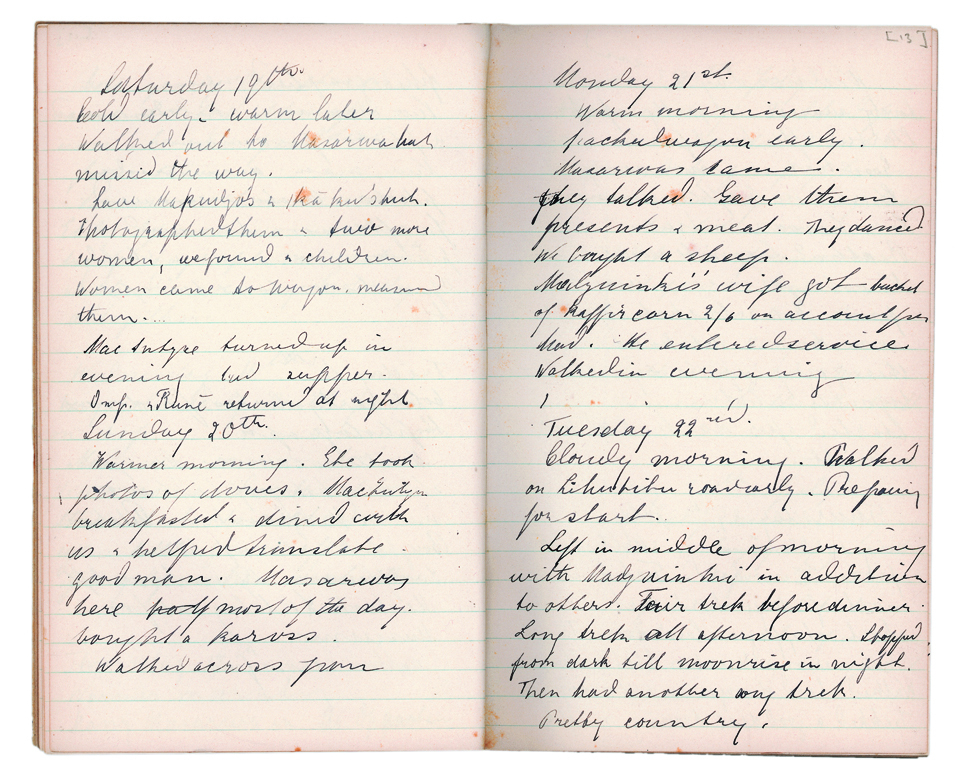 Saturday 19th.
Cold early. warm later
Walked out to Masarwa hut
missed the way.
Photographed them & two more
women, we found & children.
Women came to Wagon, measured
them...
MacIntyre turned up in
evening had supper.
Imp. & returned at night
Sunday 20th.
Warmer morning. Ebe took
photos of doves. MacIntyre
breakfasted & dined with
us & helped translate
good man. Masarwas
here half most of the day.
bought a kaross.
Walked across pan
[13]
Monday 21st.
Warm morning
packed wagon early.
Masarwas came.
they talked. Gave them
presents & meat. They danced
We bought a sheep.
wife got bucket
of Kaffir corn 2/6 on account per
He entered service
Walked in evening
Tuesday 22nd.
Cloudy morning. Walked
on road early. Preparing
for start.
Left in middle of morning
with in addition
to others. Fair trek before dinner.
Long trek all afternoon. Stopped
from dark till moonrise in night.
Then had another trek.
Pretty country.